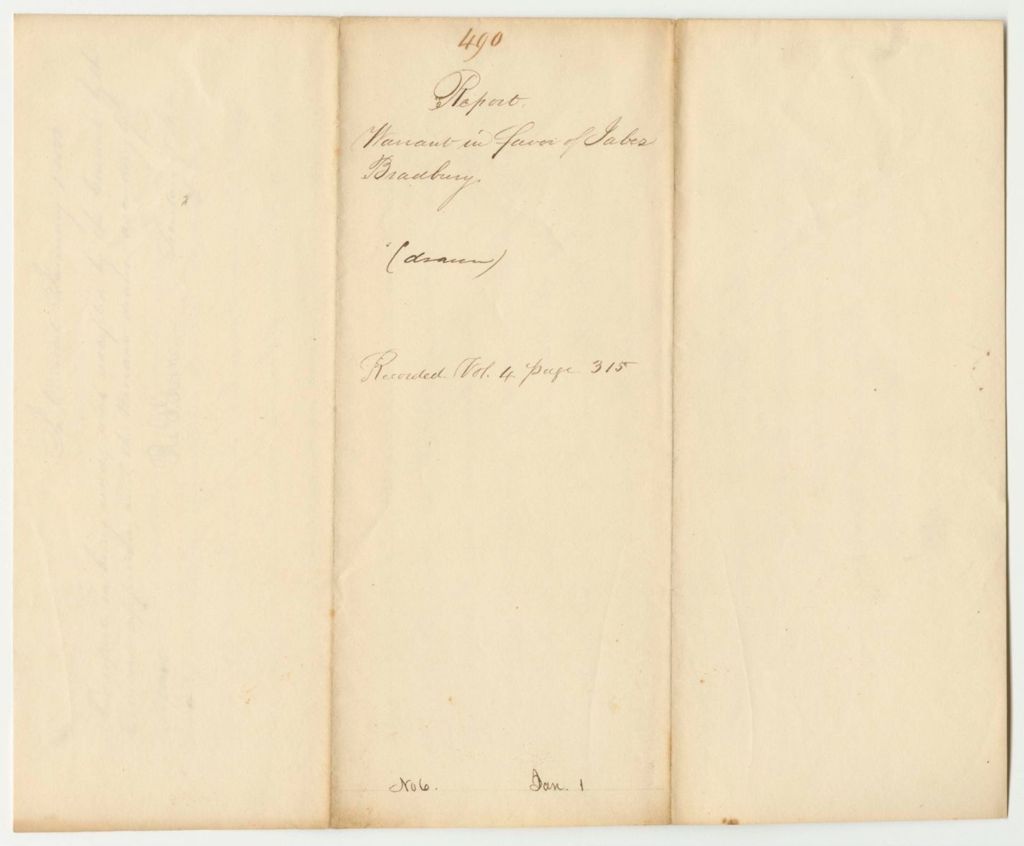 490
Report.
Warrant in favor of Jabez
Bradbury.
(drawn)
Recorded Vol. 4 page 315
No 6. Jan. 1